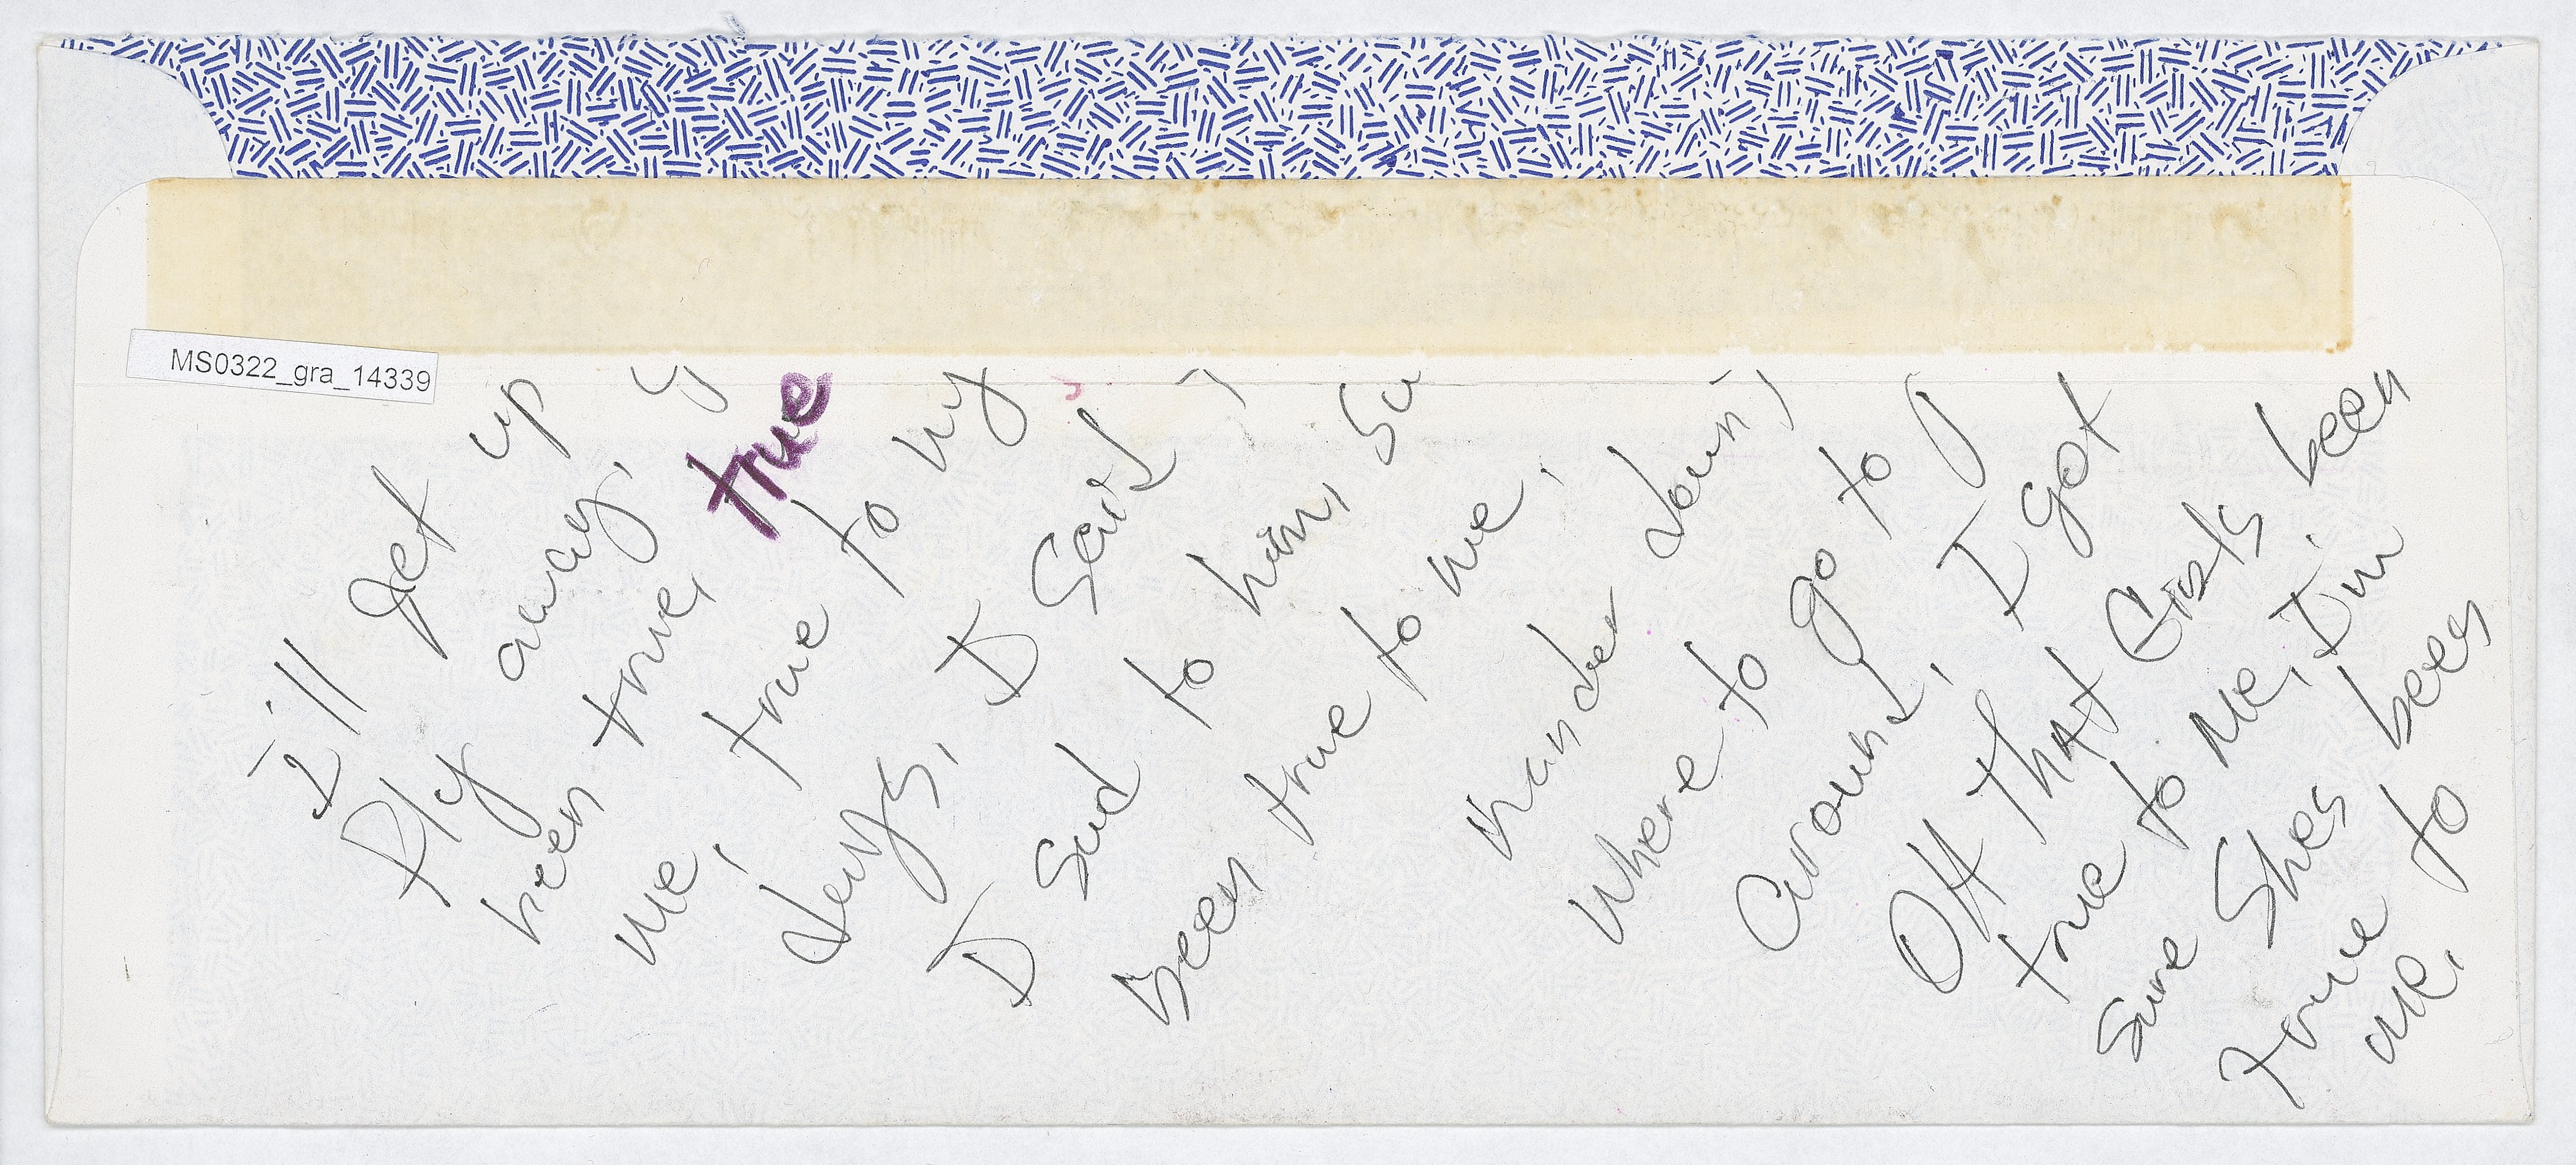 MS0322_gra_14339
I'll get up
fly away,
been true, true
me, true to my
denys, I said
I said to him, su
Been true to me,
wander down
where to go to
around, I got
Off that Girls been
true to me, Im
sure Shes been
true to bees
me,